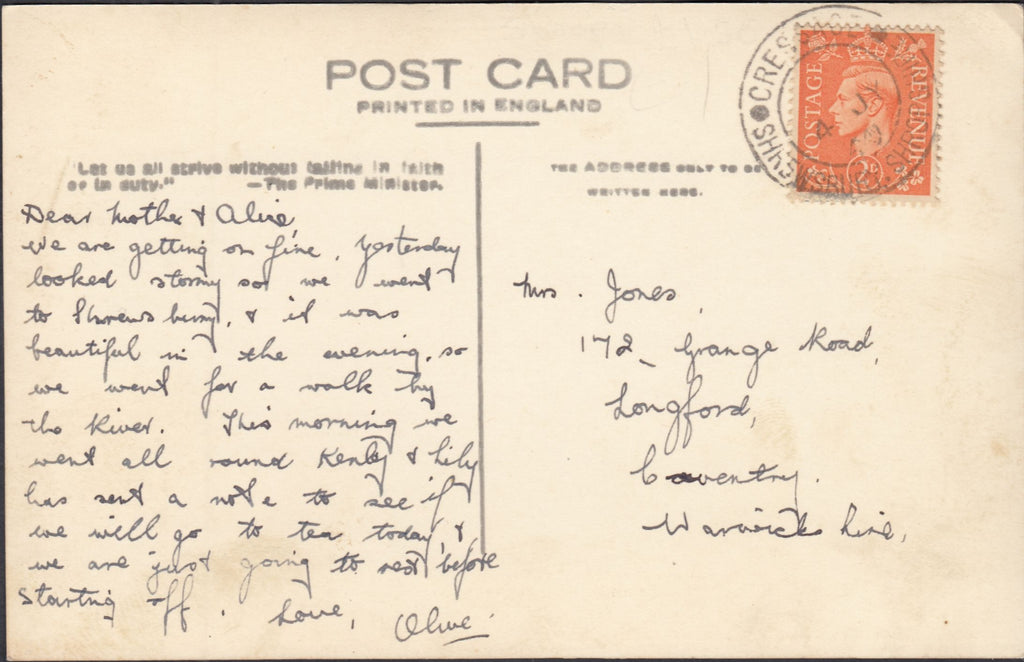 POST CARD
PRINTED IN ENGLAND
"Let us all strive without failing in faith
or in duty." —The Prime Minister.
THE ADDRESS ONLY TO BE
WRITTEN HERE.
CRESSAGE
SHREWSBURY SHROPSHIRE
4 JY
POSTAGE REVENUE
2D
Dear Mother & Alice,
We are getting on fine. Yesterday
looked stormy so we went
to Shrewsbury, & it was
beautiful in the evening, so
we went for a walk by
the River. This morning we
went all round Kenley & Lily
has sent a note to see if
we will go to tea today, &
we are just going to rest before
starting off. Love, Olive.
Mrs. Jones,
172, Grange Road,
Longford,
Coventry.
Warwickshire,